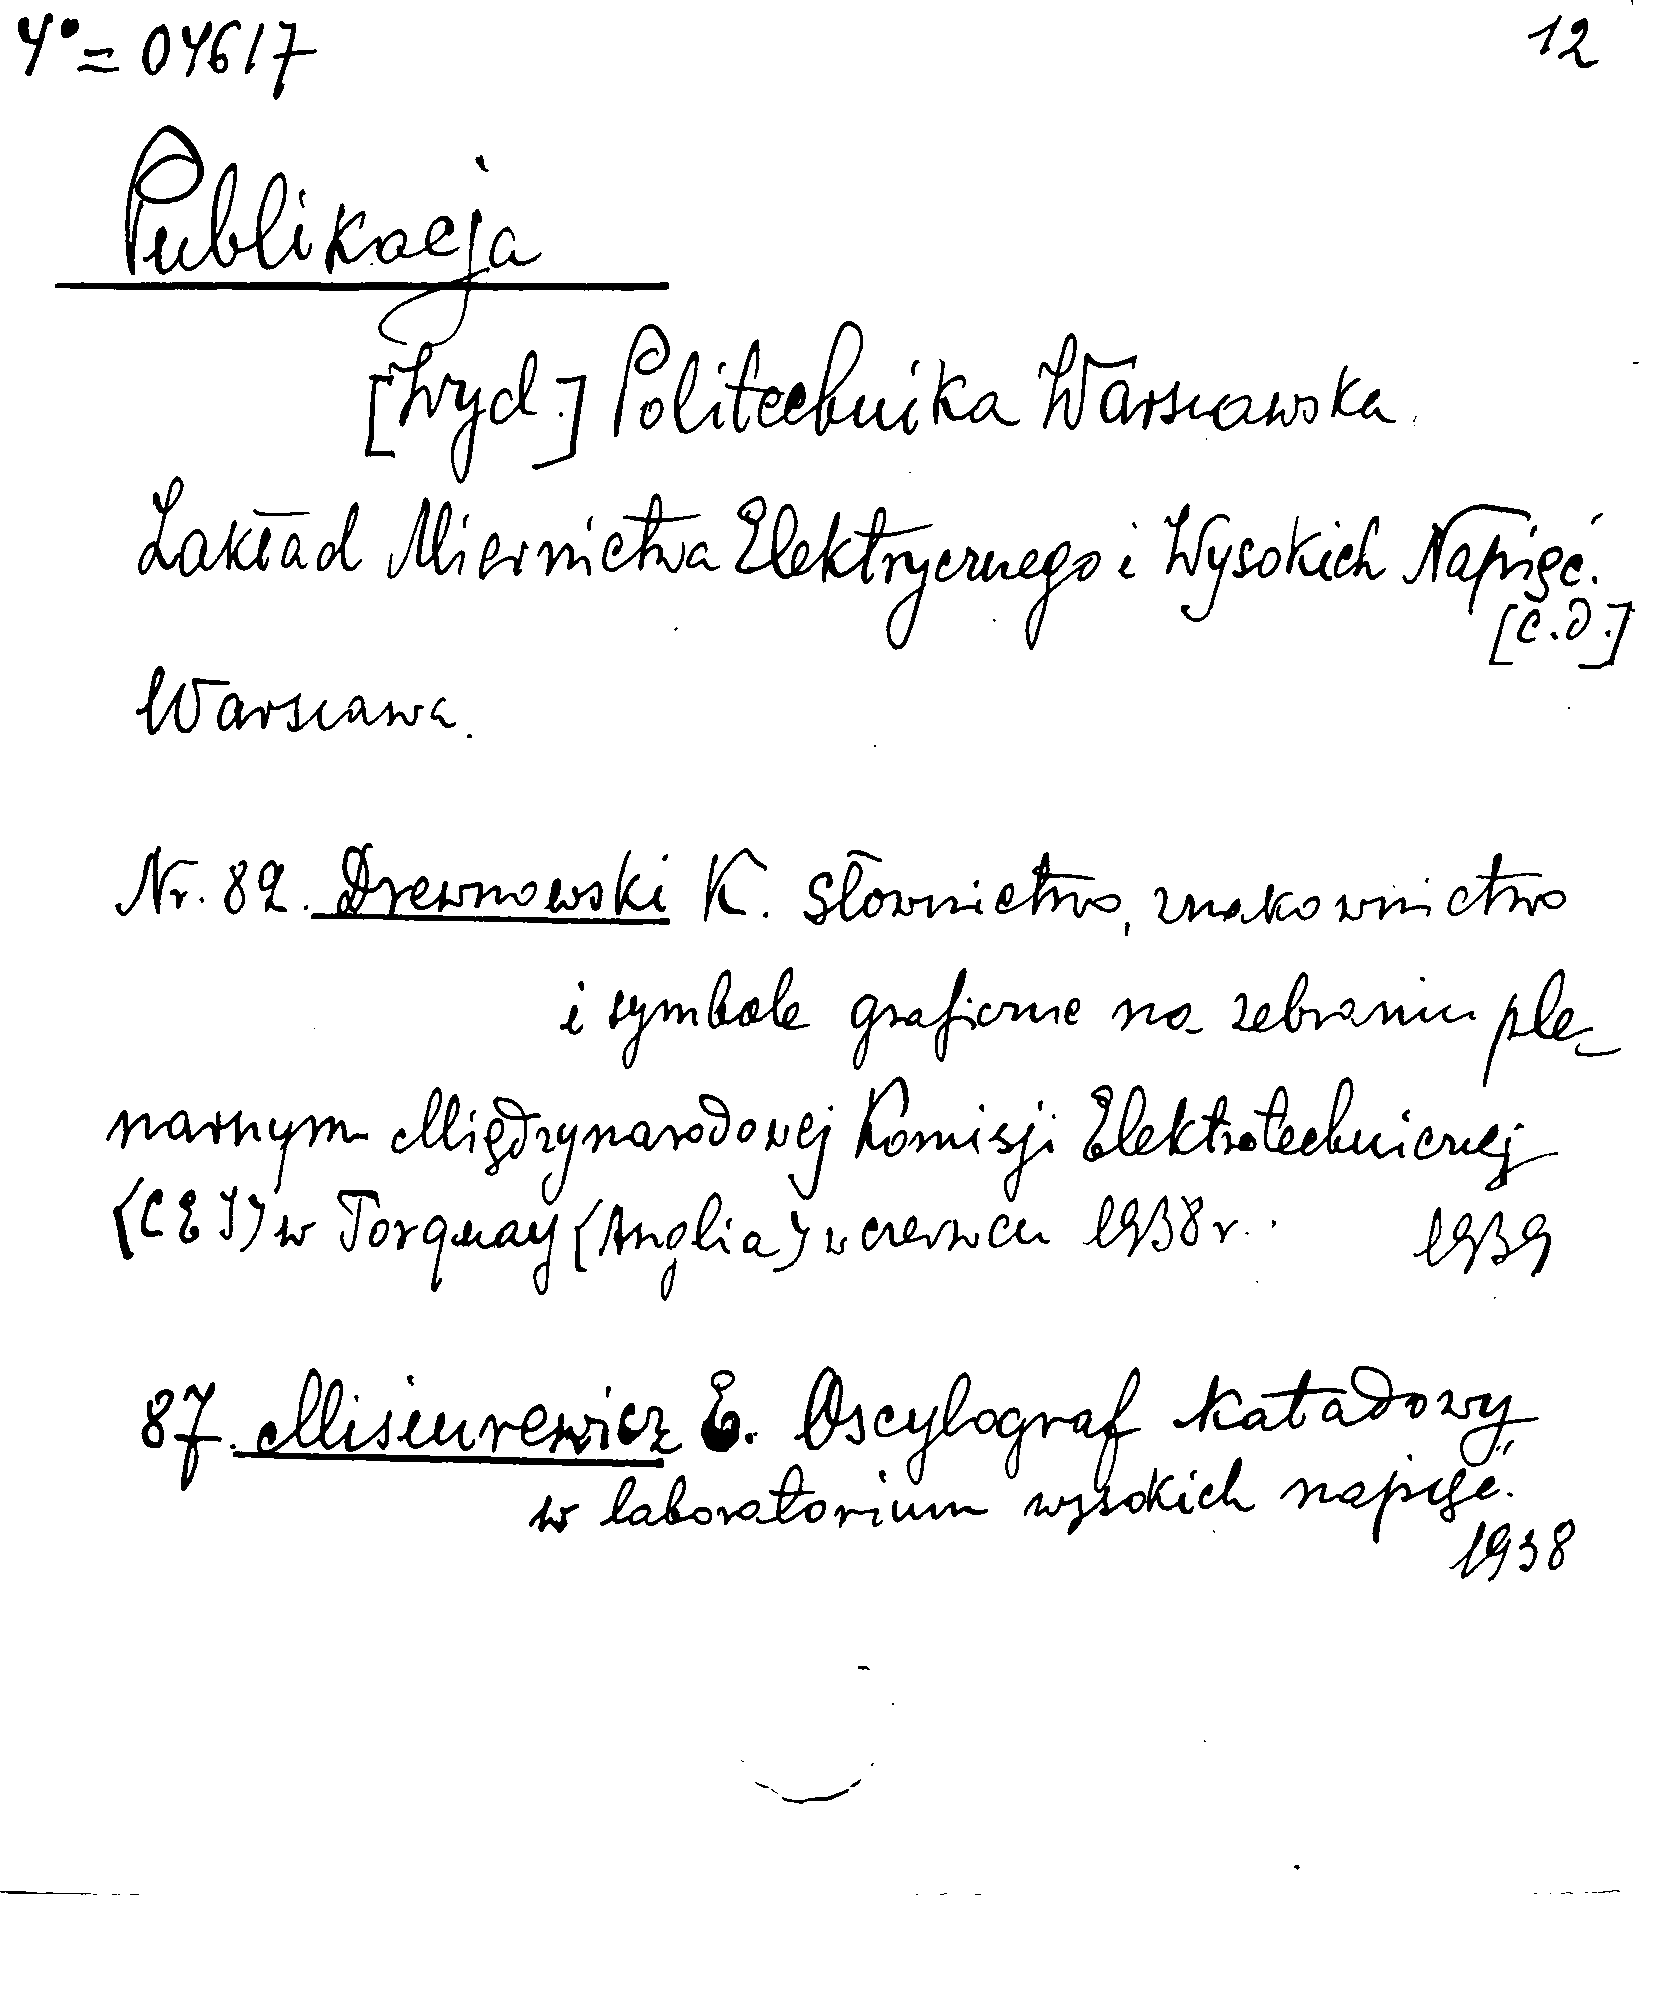 4° = 04617
12
Publikacja
[Wyd.] Politechnika Warszawska.
Zakład Miernictwa Elektrycznego i Wysokich Napięć.
[c.d.]
Warszawa.
Nr. 82. Drewnowski K. Słownictwo, znakownictwo
i symbole graficzne na zebraniu ple-
narnym Międzynarodowej Komisji Elektrotechnicznej
(CEI) w Torquay (Anglia) w czerwcu 1938 r. 1939
87. Misiurewicz E. Oscylograf katodowy
w laboratorium wysokich napięć.
1938